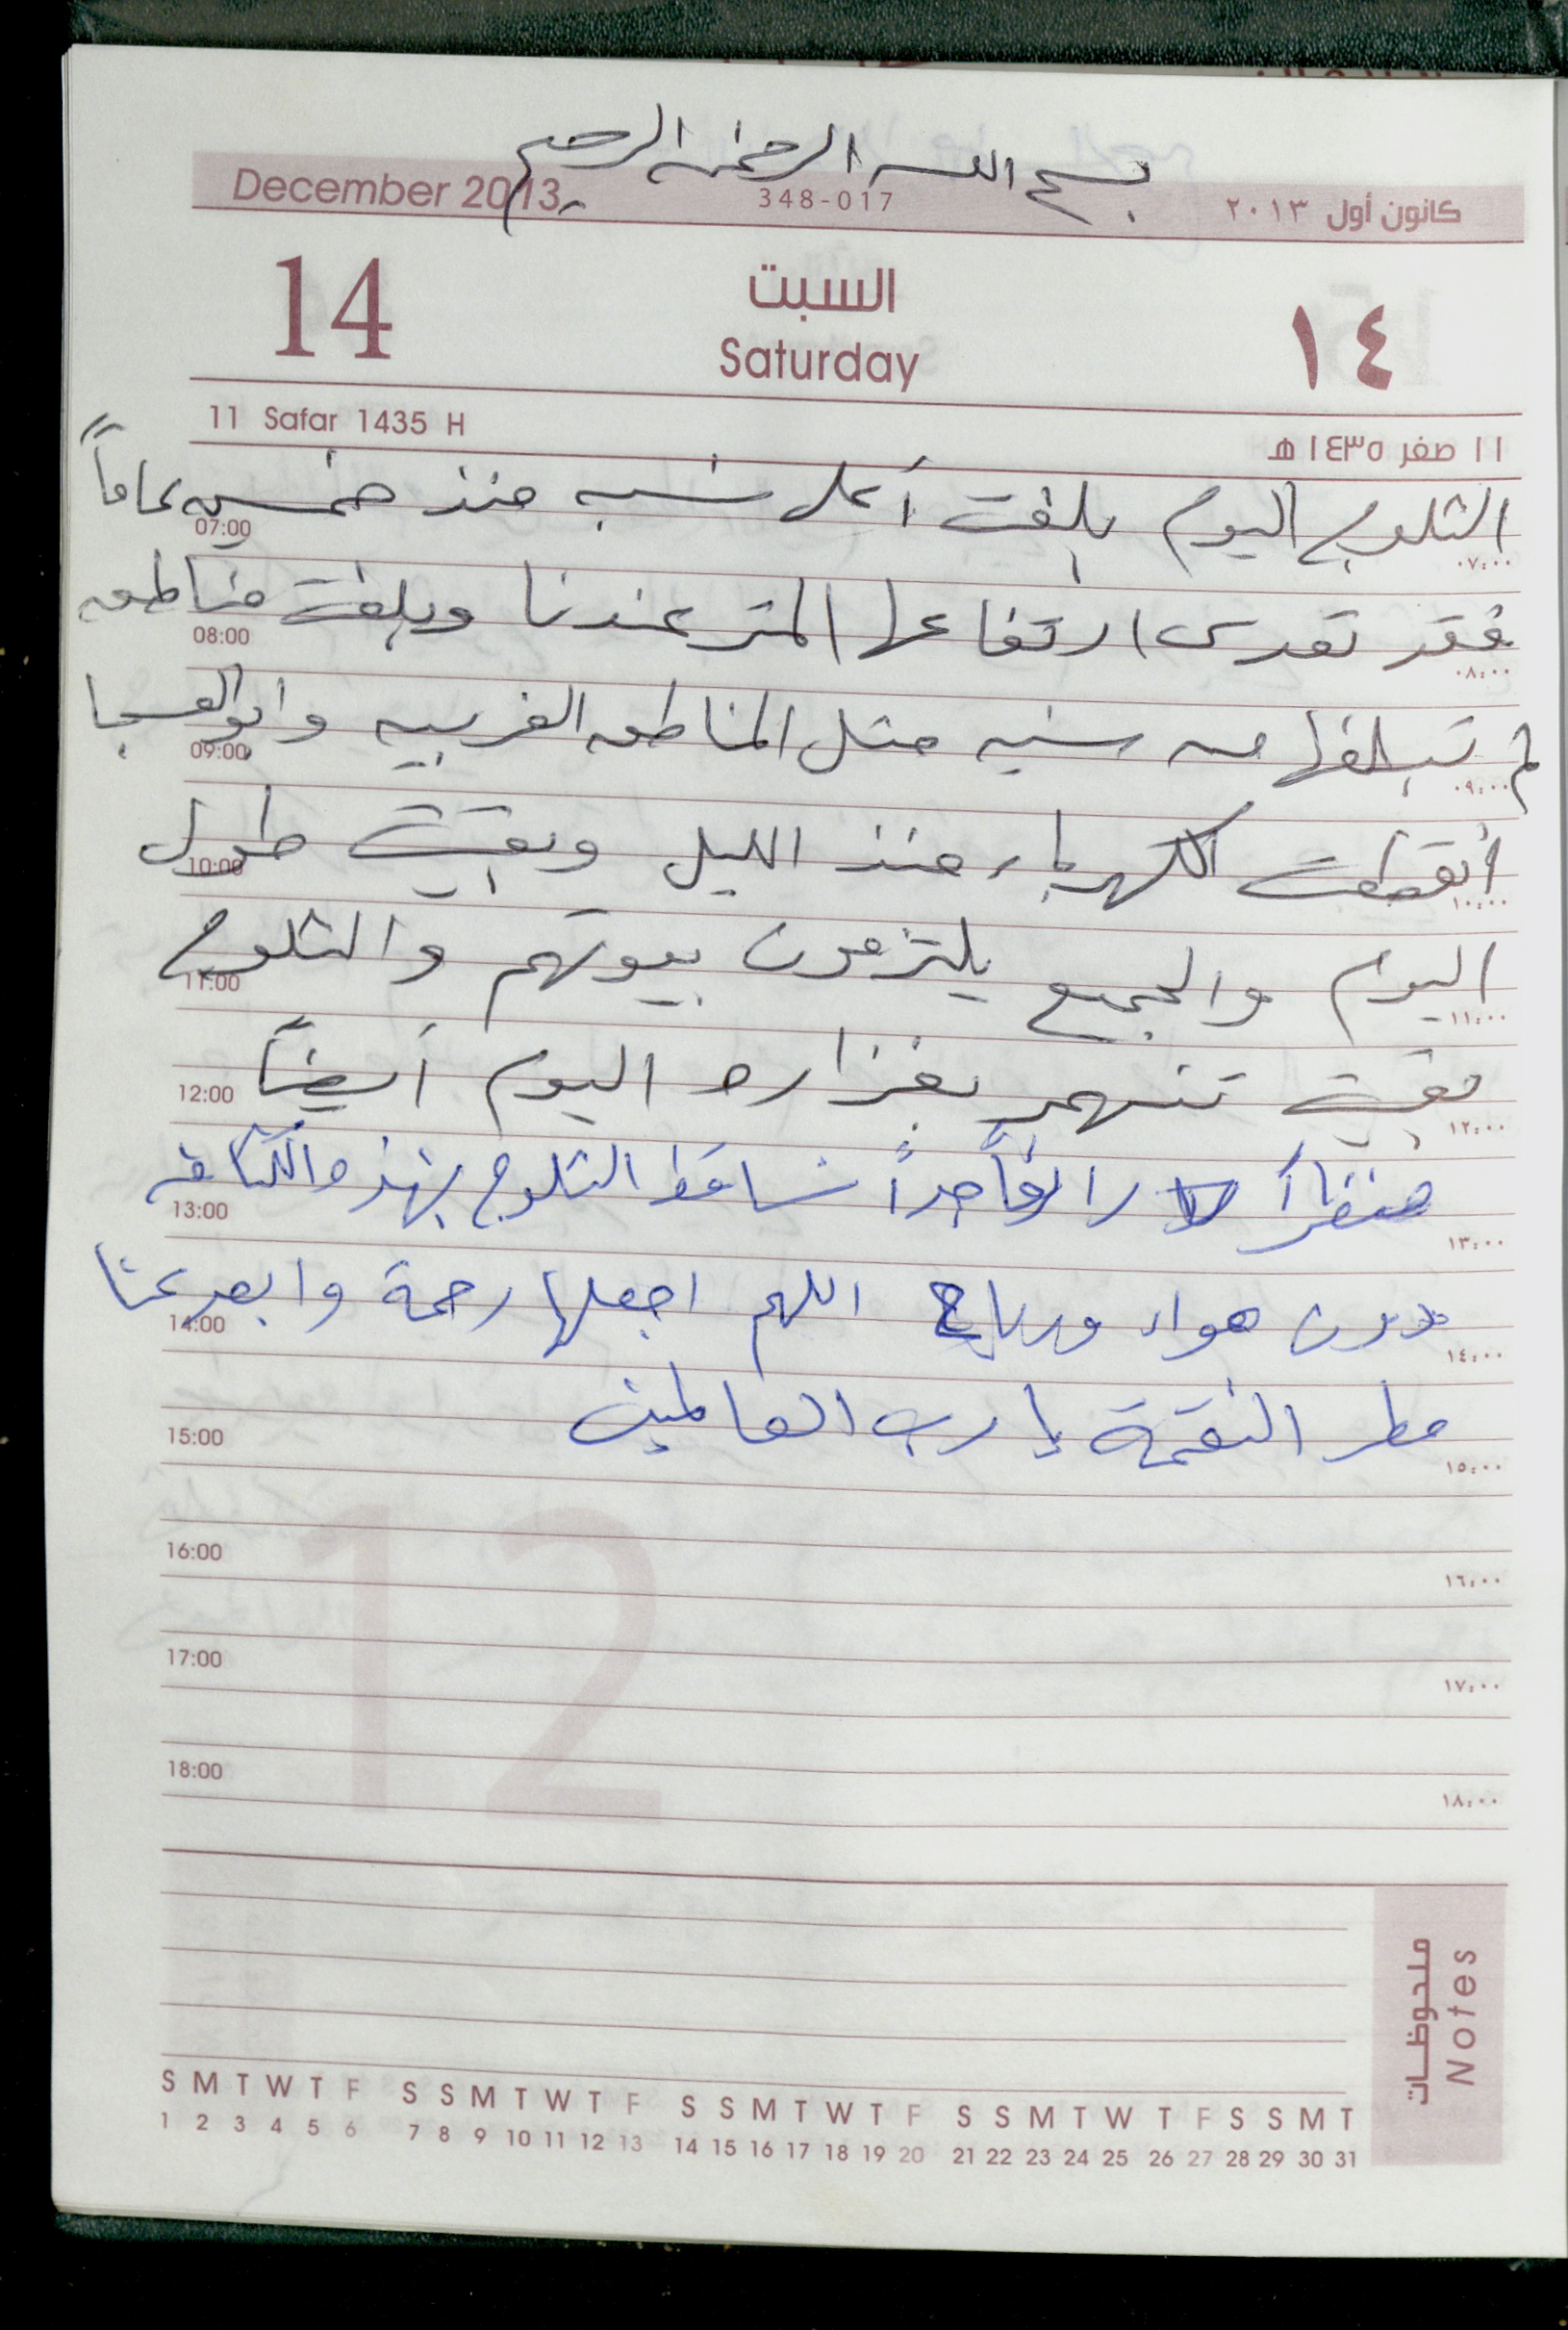 بسم الله الرحمن الرحيم
December 2013
348-017
كانون أول ٢٠١٣
14
السبت
Saturday
١٤
11 Safar 1435 H
١١ صفر ١٤٣٥ هـ
الثلوج اليوم بلغت أعلى نسبه منذ خمسين عاماً
07:00 ٠٧:٠٠
فقد تعدى ارتفاعها المتر عندنا وبلغت مناطق
08:00 ٠٨:٠٠
لم تبلغها من سنين مثل المناطق الغربيه وابو العسجا
09:00 ٠٩:٠٠
أنقطعت الكهرباء منذ الليل وبقيت طول
10:00 ١٠:٠٠
اليوم والجميع يلتزمون بيوتهم والثلوج
11:00 ١١:٠٠
بقيت تنهمر بغزاره اليوم أيضاً
12:00 ١٢:٠٠
منظراً رائعاً جداً تساقط الثلوج بهذه الكثافه
13:00 ١٣:٠٠
بدون هواء ورياح اللهم اجعلها رحمة وابعد عنا
14:00 ١٤:٠٠
مطر النقمة يا رب العالمين
15:00 ١٥:٠٠
16:00 ١٦:٠٠
17:00 ١٧:٠٠
18:00 ١٨:٠٠
12
ملحوظات
Notes
S M T W T F S S M T W T F S S M T W T F S S M T W T F S S M T
1 2 3 4 5 6 7 8 9 10 11 12 13 14 15 16 17 18 19 20 21 22 23 24 25 26 27 28 29 30 31